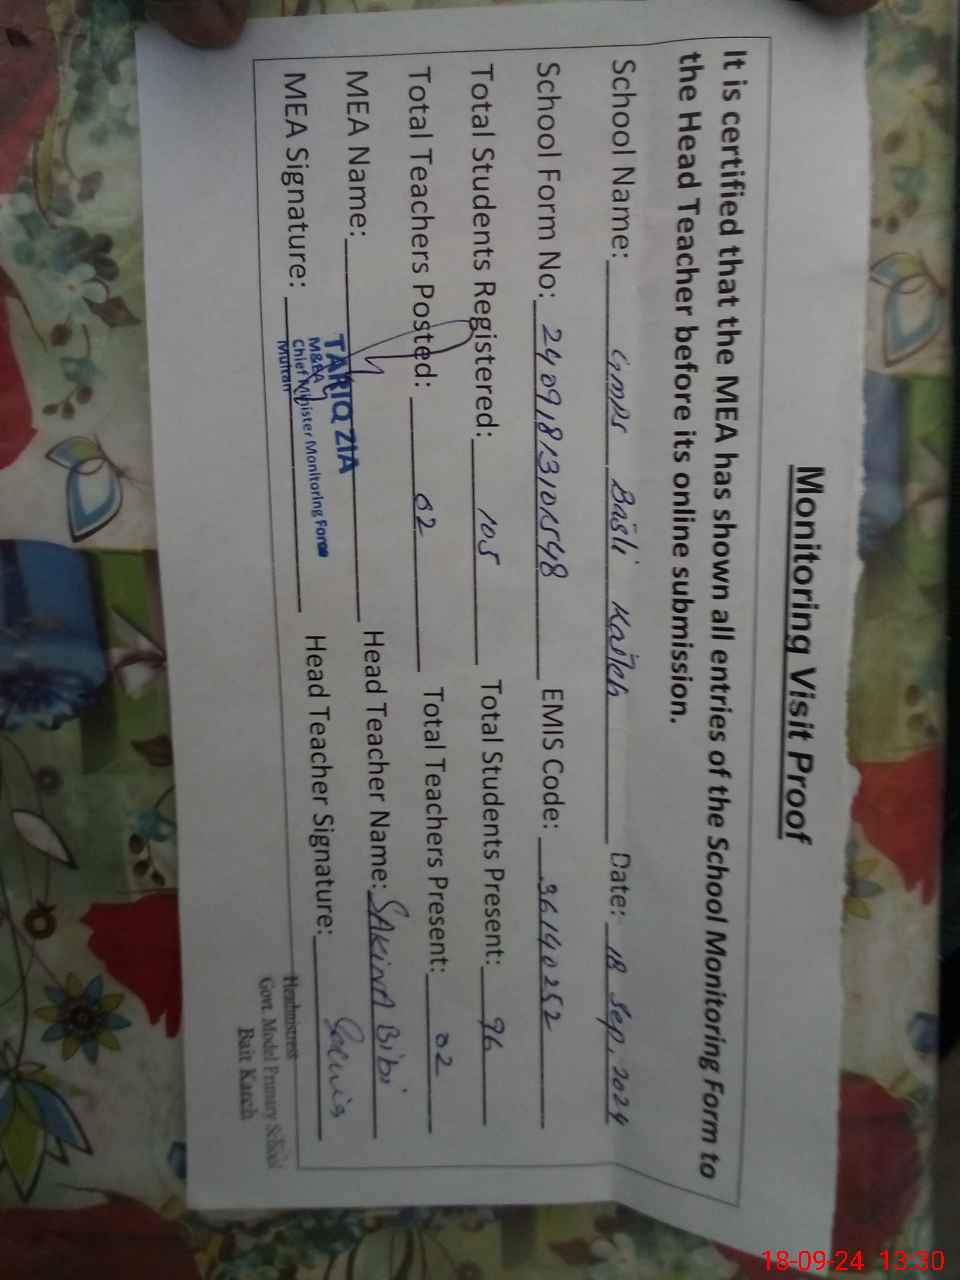 Monitoring Visit Proof
It is certified that the MEA has shown all entries of the School Monitoring Form to
the Head Teacher before its online submission.
School Name: GMPS Basti Kaich Date: 18 Sep, 2024
School Form No: EMIS Code: 36140252
Total Students Registered: 105 Total Students Present: 96
Total Teachers Posted: 02 Total Teachers Present: 02
MEA Name: TARIQ ZIA Head Teacher Name: SAKINA Bibi
M&EA
Chief Minister Monitoring Force
Multan
MEA Signature: Head Teacher Signature:
Headmistress
Govt. Model Primary School
Bait Kaech
18-09-24 13:30